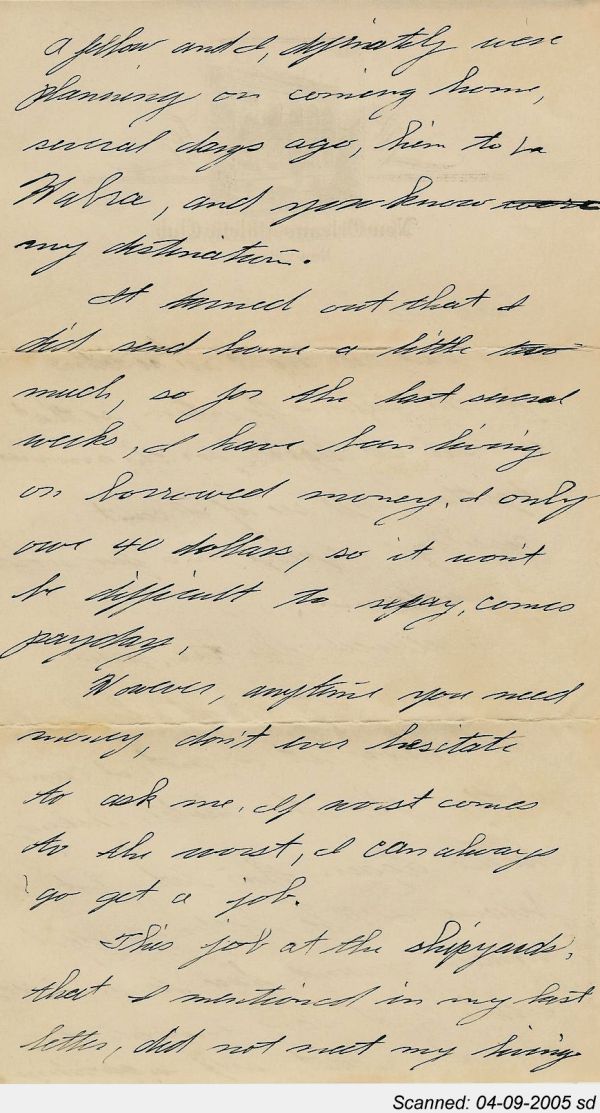 a fellow and I, definately were
planning on coming home,
several days ago, him to La
Habra, and you know
my destination.
It turned out that I
did send home a little too
much, so for the last several
weeks, I have been living
on borrowed money. I only
owe 40 dollars, so it won't
be difficult to repay, comes
payday.
However, anytime you need
money, don't ever hesitate
to ask me. If worst comes
to the worst, I can always
go get a job.
This job at the shipyards,
that I mentioned in my last
letter, did not meet my living
Scanned: 04-09-2005 sd